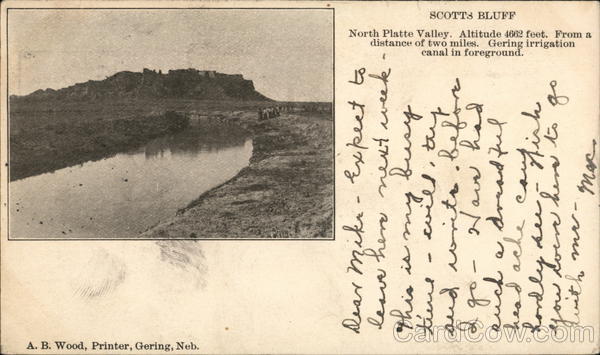 SCOTTS BLUFF
North Platte Valley. Altitude 4662 feet. From a
distance of two miles. Gering irrigation
canal in foreground.
Dear Mike - Expect to
leave here next week -
This is my busy
time - will try
and write before
I go - Have had
such a dreadful
head ache can
hardly see - Wish
you were here to go
with me -
A. B. Wood, Printer, Gering, Neb.
CardCow.com